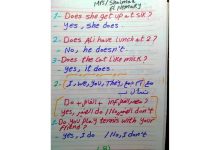 MR/Shaimaa
El Menshawy
1- Does she get up at six?
Yes, she does.
2- Does Ali have lunch at 2?
No, he doesn't
3- Does the cat like milk?
yes, it does
2- I, we, you, They,
Do + فاعل + inf
yes, فاعل do / No, فاعل don't
1- Do you play tennis with your
friend?
yes, I do / No, I don't